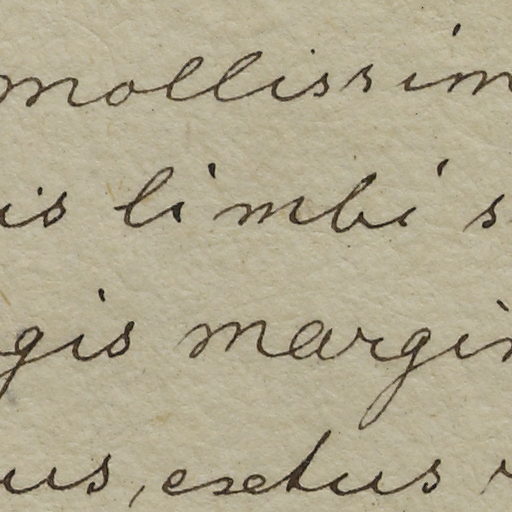 mollissim
is limbi s
gis margin
us, extus